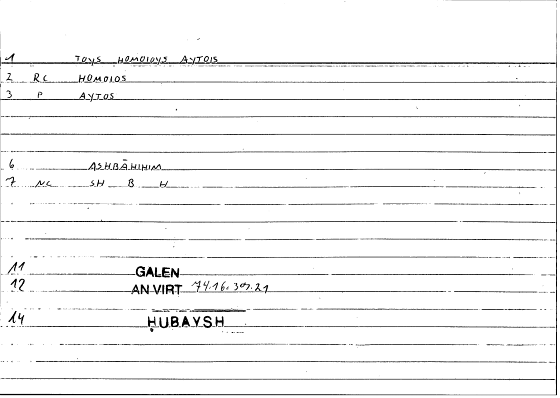 1 TOYS HOMOIOYS AYTOIS
2 RC HOMOIOS
3 P AYTOS
6 ASHBĀHIHIM
7 NC SH B H
11 GALEN
12 AN VIRT
14 ḤUBAYSH